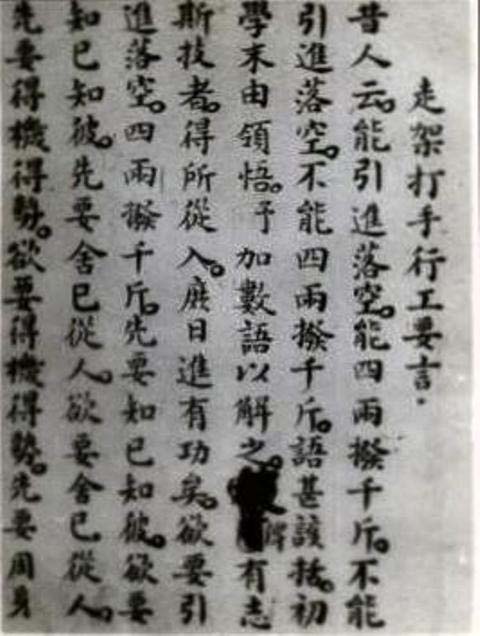 走架打手行工要言．
昔人云。能引進落空。能四兩撥千斤。不能
引進落空。不能四兩撥千斤。語甚該括。初
學末由領悟。予加數語以解之。俾有志
斯技者。得所從入。庶日進有功矣。欲要引
進落空。四兩撥千斤。先要知已知彼。欲要
知已知彼。先要舍已從人。欲要舍已從人。
先要得機得勢。欲要得機得勢。先要周身